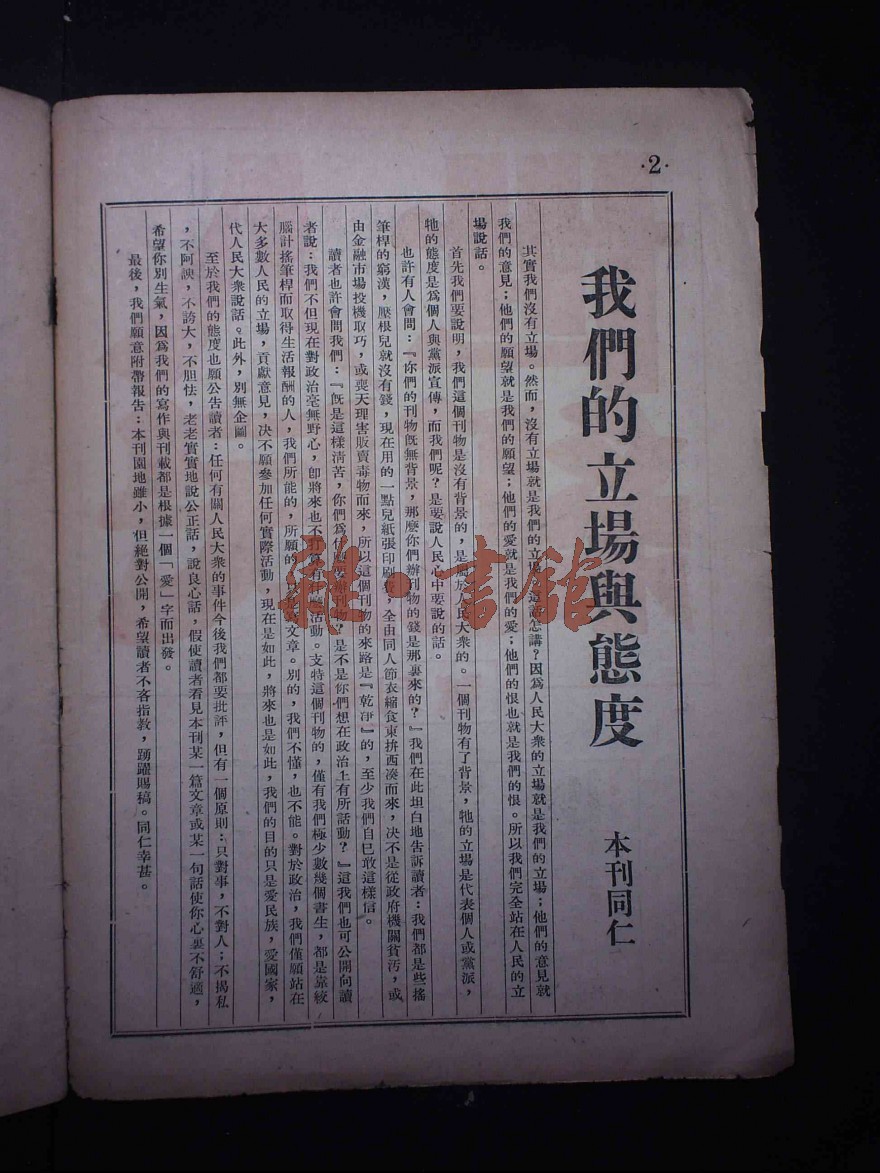 ·2·
我們的立場與態度
本刊同仁
其實我們沒有立場。然而,沒有立場就是我們的立場,這話怎講?因爲人民大衆的立場就是我們的立場;他們的意見就
我們的意見;他們的願望就是我們的願望;他們的愛就是我們的愛;他們的恨也就是我們的恨。所以我們完全站在人民的立
場說話。
首先我們要說明,我們這個刊物是沒有背景的,是屬於人民大衆的。一個刊物有了背景,牠的立場是代表個人或黨派,
牠的態度是爲個人與黨派宣傳,而我們呢?是要說人民心中要說的話。
也許有人會問:『你們的刊物旣無背景,那麼你們辦刊物的錢是那裏來的?』我們在此坦白地告訴讀者:我們都是些搖
筆桿的窮漢,壓根兒就沒有錢,現在用的一點兒紙張印刷費,全由同人節衣縮食東拚西凑而來,决不是從政府機關貧汚,或
由金融市場投機取巧,或喪天理害販賣毒物而來,所以這個刊物的來路是『乾淨』的,至少我們自巳敢這樣信。
讀者也許會問我們:『旣是這樣淸苦,你們爲什麽要辦刊物?是不是你們想在政治上有所話動?』這我們也可公開向讀
者說:我們不但現在對政治毫無野心,卽將來也不打算有什麽活動。支特這個刊物的,僅有我們極少數幾個書生,都是靠絞
腦計搖筆桿而取得生活報酬的人,我們所能的,所願的,是文章。別的,我們不懂,也不能。對於政治,我們僅願站在
大多數人民的立場,貢獻意見,决不願參加任何實際活動,現在是如此,將來也是如此,我們的目的只是愛民族,愛國家,
代人民大衆說話。此外,別無企圖。
至於我們的態度也願公告讀者:任何有關人民大衆的事件今後我們都要批評,但有一個原則:只對事,不對人;不揭私
,不阿諛,不誇大,不胆怯,老老實實地說公正話,說良心話,假使讀者看見本刊某一篇文章或某一句話使你心裏不舒適,
希望你別生氣,因爲我們的寫作與刊載都是根據一個「愛」字而出發。
最後,我們願意附帶報告:本刊園地雖小,但絕對公開,希望讀者不吝指教,踴躍賜稿。同仁幸甚。
雜·書館